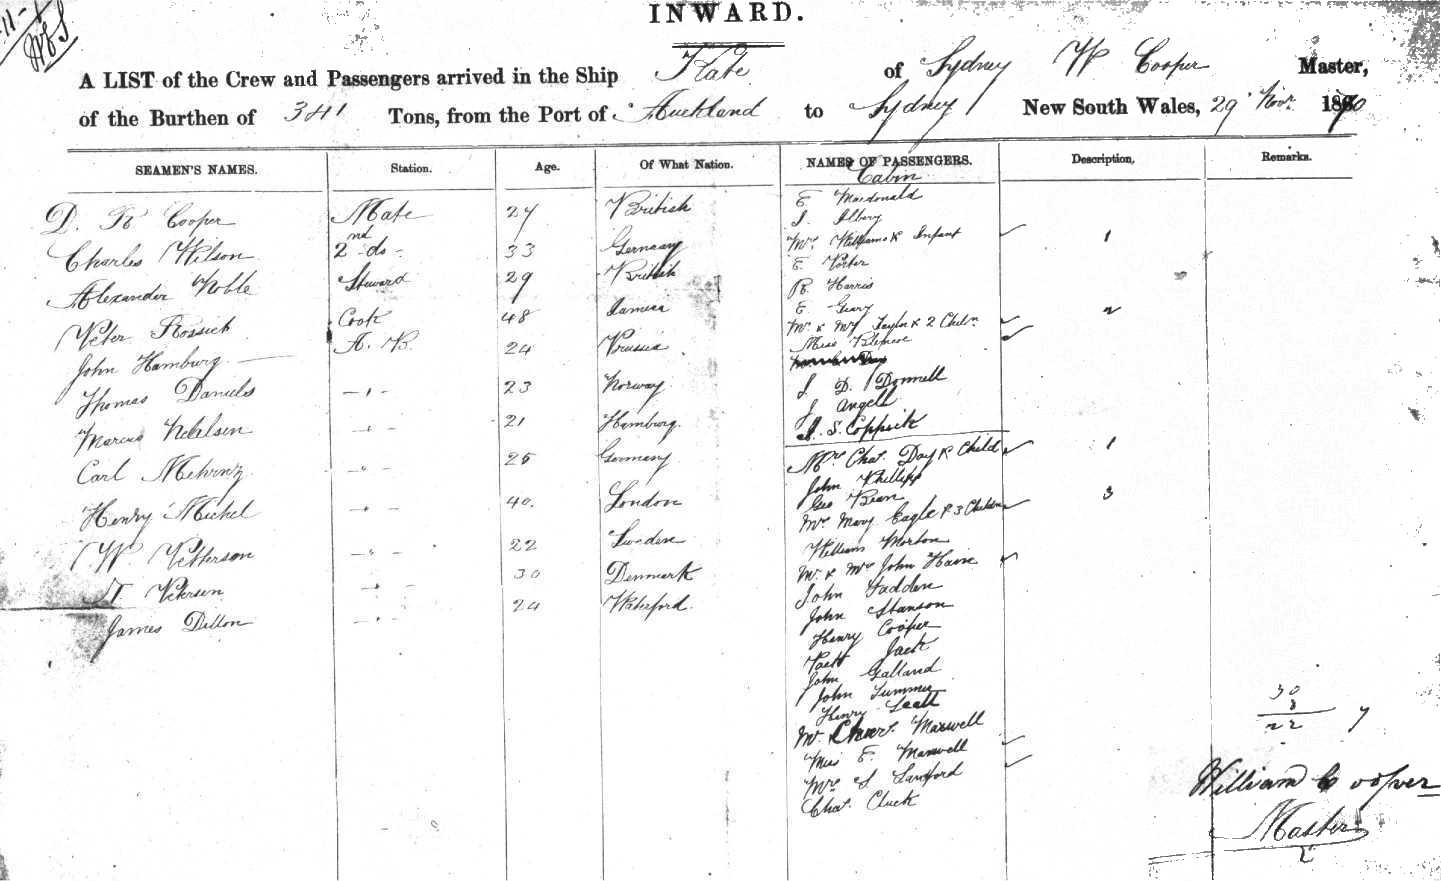 INWARD.
A LIST of the Crew and Passengers arrived in the Ship Kate of Sydney W Cooper Master,
of the Burthen of 341 Tons, from the Port of Auckland to Sydney New South Wales, 29 Novr. 1870
SEAMEN'S NAMES. Station. Age. Of What Nation. NAMES OF PASSENGERS. Description. Remarks.
D. R Cooper Mate 27 British
Charles Wilson 2nd do 33 Germany
Alexander Noble Steward 29 British
Peter Rossich Cook 48 Jamica
John Hamburg A. B. 24 Prussia
Thomas Daniels 23 Norway
Marcus 21 Hamburg.
Carl 25 Germany
Henry Michel 40. London
W. Petterson 22 Sweden
Petersen 30 Denmark
James Dillon 24 Waterford.
Cabin
E Macdonald
J. Ilbery
Mrs. Williams & Infant 1
E. Porter
R. Harris
E Geary
Mr & Mrs Taylor & 2 Chiln 2
Miss
J. D. Donnell
J Angell
J. S. Coppick
Mrs Chas. Day & Child 1
John Phillips
Geo Bean
Mrs Mary Eagle & 3 Children 3
William Morton
Mr. & Mrs John
John Hadden
John Stanson
Henry Cooper
Jack
John Galland
John Summer
Henry
Mr. Chas. Maxwell
Miss E. Maxwell
Mrs S Lanford
Chas. Cluck
30
8
22 7
William Cooper
Master